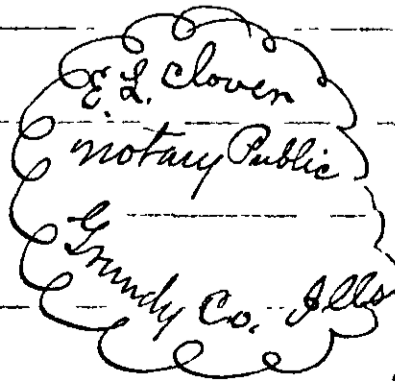 E. L. Clover
Notary Public
Grundy Co. Ills